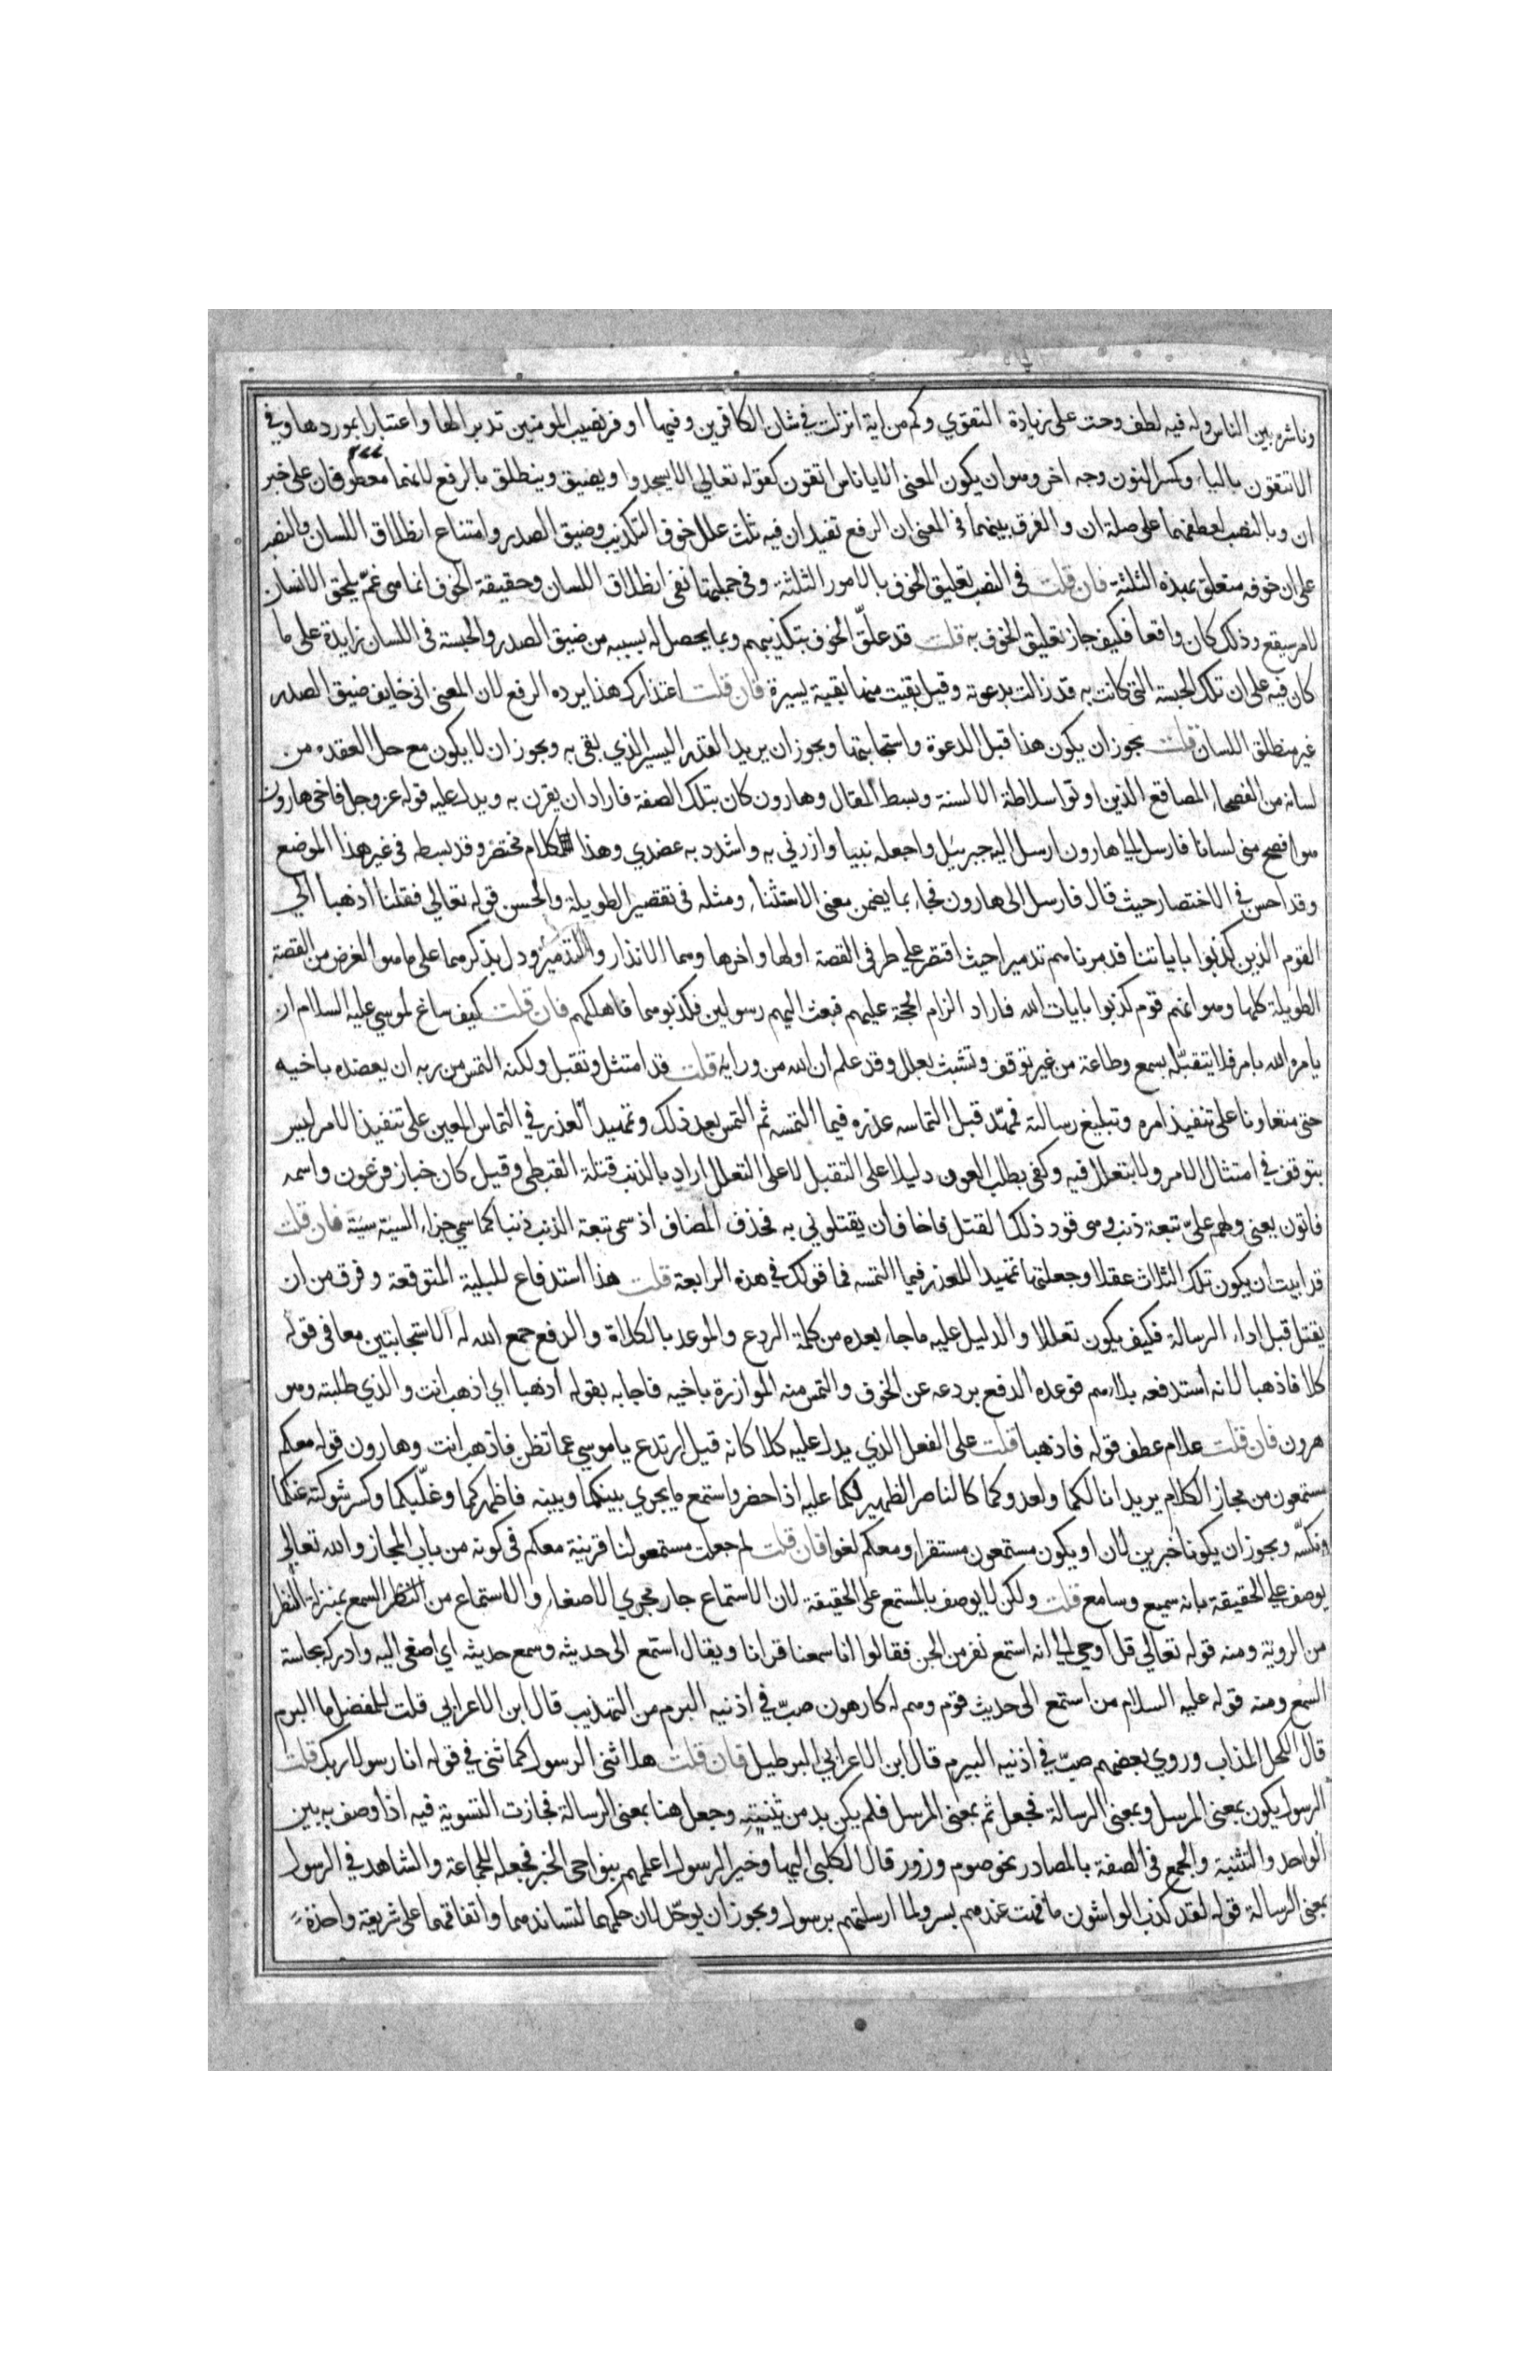 وناشره بين الناس وله فيه لطف وحث على زيادة التقوي وكم من اية انزلت في شان الكافرين وفيها اوفر نصيب المومنين تدبرا لها واعتبارا بموردها وفي
الا تتقون بالياء وكسر النون وجه اخر وهو ان يكون المعنى الا يا ناس اتقون كقوله تعالي الا يسجدوا ويضيق وينطلق بالرفع لانهما معطوفان على خبر
ان وبالنصب لعطفهما على صلة ان والفرق بينهما في المعنى ان الرفع تفيد ان فيه ثلث علل خوف التكذيب وضيق الصدر وامتناع انطلاق اللسان والنصب
على ان خوفه متعلق بهذه الثلثة فان قلت في النصب تعليق الخوف بالامور الثلثة وفي جملتها نفى انطلاق اللسان وحقيقة الخوف انما هي غم يلحق الانسان
لامر سيقع وذلك كان واقعا فكيف جاز تعليق الخوف به قلت قد علّق الخوف بتكذيبهم وبما يحصل له بسببه من ضيق الصدر والحبسة في اللسان زايدة على ما
كان فيه على ان تلك الحبسة التي كانت به قد زالت بدعوته وقيل بقيت منها بقية يسيرة فان قلت اعتذارك هذا يرده الرفع لان المعنى اني خايف ضيق الصدر
غير منطلق اللسان قلت يجوز ان يكون هذا قبل الدعوة واستجابتها ويجوز ان يريد القدر اليسير الذي بقى به ويجوز ان لا يكون مع حل العقده من
لسانه من الفصحاء المصاقع الذين اوتوا سلاطة الالسنة وبسط المقال وهارون كان بتلك الصفة فاراد ان يقرن به ويدل عليه قوله عز وجل فاخى هارون
هو افصح منى لسانا فارسل الي هارون ارسل اليه جبرئيل واجعله نبيا وازرني به واشدد به عضدي وهذا الكلام مختصر وقد بسطه في غير هذا الموضع
وقد احسن في الاختصار حيث قال فارسل الى هارون فجاء بما يضمن معنى الاستثناء ومثله في تقصير الطويلة والحسن قوله تعالي فقلنا اذهبا الي
القوم الذين كذبوا باياتنا فدمرناهم تدميرا حيث اقتصر على طرفى القصة اولها واخرها وهما الانذار والتدمير ودل بذكرهما على ما هو الغرض من القصة
الطويلة كلها وهو انهم قوم كذبوا بايات الله فاراد الزام الحجة عليهم فبعث اليهم رسولين فكذبوهما فاهلكهم فان قلت كيف ساغ لموسي عليه السلام ان
يامره الله بامر فلا يتقبّله بسمع وطاعة من غير توقف وتشبث بعلل وقد علم ان الله من ورايه قلت قد امتثل وتقبل ولكنه التمس من ربه ان يعضده باخيه
حتى متعاونا على تنفيذ امره وتبليغ رسالته فمهّد قبل التماسه عذره فيما التمسه ثم التمس بعد ذلك وتمهيد العذر في التماس المعين على تنفيذ الامر ليس
بتوقف في امتثال الامر ولا بتعلل فيه وكفى بطلب العون دليلا على التقبل لا على التعلل اراد بالذنب قتلة القبطي وقيل كان خباز فرعون واسمه
فاتون يعني ولهم علىّ تبعة ذنب وهى قود ذلك القتل فاخاف ان يقتلوني به فحذف المضاف او سمى تبعة الذنب ذنبا كما سمي جزاء السيئة سيئة فان قلت
قد ابيت ان يكون تلك الثلاث عقلا وجعلتها تمهيدا للعذر فيما التمسه فما قولك في هذه الرابعة قلت هذا استدفاع للبلية المتوقعة وفرق من ان
يقتل قبل اداء الرسالة فكيف يكون تعللا والدليل عليه ما جاء بعده من كلمة الردع والموعد بالكلاة والدفع جمع الله له الاستجابتين معا في قوله
كلا فاذهبا لانه استدفعه بلاءهم فوعده الدفع بردعه عن الخوف والتمس منه الموازرة باخيه فاجابه بقوله اذهبا اي اذهب انت والذي طلبته وهو
هرون فان قلت علام عطف قوله فاذهبا قلت على الفعل الذي يدل عليه كلا كانه قيل ارتدع يا موسي عما تظن فاذهب انت وهارون قوله معكم
مستمعون من مجاز الكلام يريد انا لكما ولعدوكما كالناصر الظهير لكما عليه اذا حضر واستمع ما يجري بينكما وبينه فاظهركما وغلّبكما وكسر شوكته عنكما
ونكسّه ويجوز ان يكونا خبرين لان او يكون مستمعون مستقرا ومعكم لغوا فان قلت لم جعلت مستمعون لنا قرينة معكم في كونه من باب المجاز والله تعالي
يوصف على الحقيقة بانه سميع وسامع قلت ولكن لا يوصف بالمستمع على الحقيقة لان الاستماع جار مجري الاصغاء والاستماع من السمع بمنزلة النظر
من الروية ومنه قوله تعالي قل اوحي الي انه استمع نفر من الجن فقالوا انا سمعنا قرانا ويقال استمع الى حديثه وسمع حديثه اي اصغى اليه وادركه بحاسة
السمع ومنه قوله عليه السلام من استمع الى حديث قوم وهم له كارهون صبّ في اذنيه البرم من التهذيب قال ابن الاعرابي قلت للمفضل ما البرم
قال الكحل المذاب وروي بعضهم صبّ في اذنيه البيرم قال ابن الاعرابي البرطيل فان قلت هلا ثنى الرسول كما ثنى في قوله انا رسولا ربك قلت
الرسول يكون بمعنى المرسل وبمعنى الرسالة فجعل ثم بمعنى المرسل فلم يكن بد من تثنيته وجعل هنا بمعنى الرسالة فجازت التسوية فيه اذا وصف به بين
الواحد والتثنية والجمع في الصفة بالمصادر نحو صوم وزور قال الكلبى اليها وخير الرسول اعلمهم بنواحى الخبر فجعله للجماعة والشاهد في الرسول
بمعنى الرسالة قوله لقد كذب الواشون ما فهت عندهم بسر ولا ارسلتهم برسول ويجوز ان يوحّد لان حكمهما لتساندهما واتفاقهما على شريعة واحدة